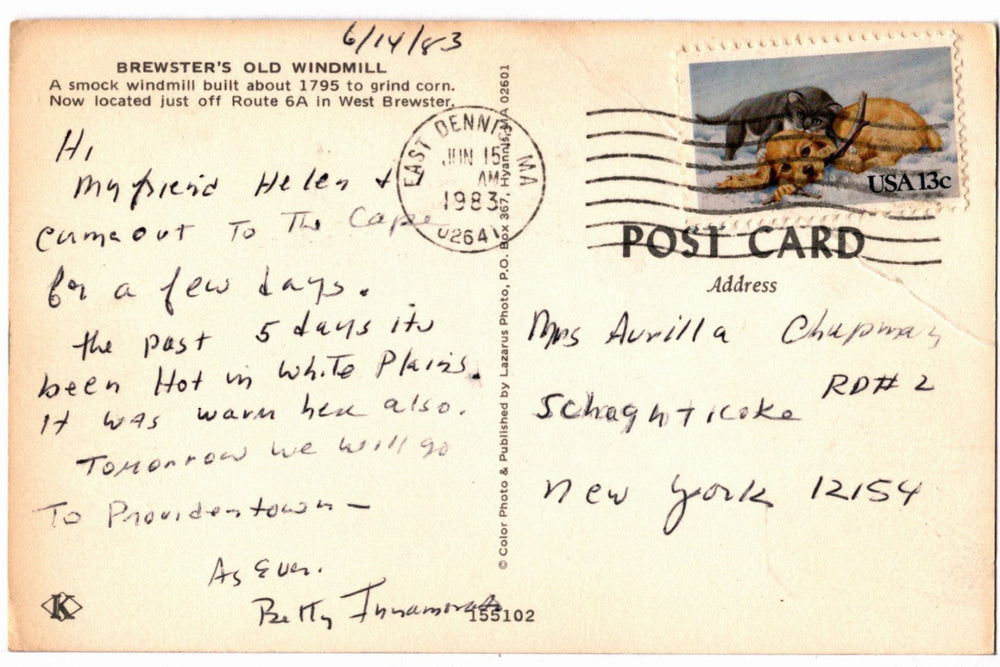 6/14/83
BREWSTER'S OLD WINDMILL
A smock windmill built about 1795 to grind corn.
Now located just off Route 6A in West Brewster.
Hi,
My friend Helen &
came out To The Cape
for a few days.
The past 5 days its
been Hot in White Plains.
It was warm here also.
Tomorrow we will go
To Providentown –
As Ever.
Betty
K
155102
© Color Photo & Published by Lazarus Photo, P.O. Box 367, Hyannis, MA 02601
EAST DENNIS, MA
JUN 15
AM
1983
02641
USA 13c
POST CARD
Address
Mrs Aurilla Chapman
RD# 2
Schaghticoke
New York 12154